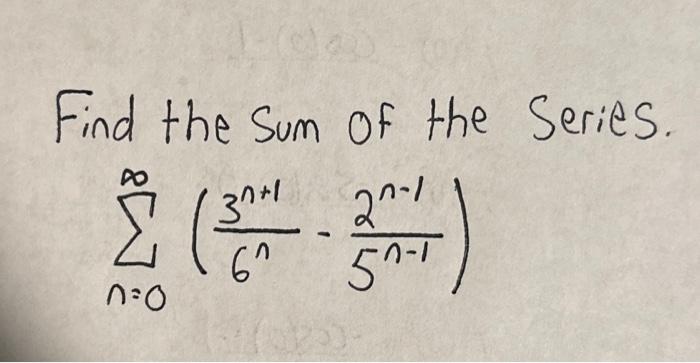 Find the Sum of the Series.
∞
Σ (3^{n+1}/6^n - 2^{n-1}/5^{n-1})
n=0